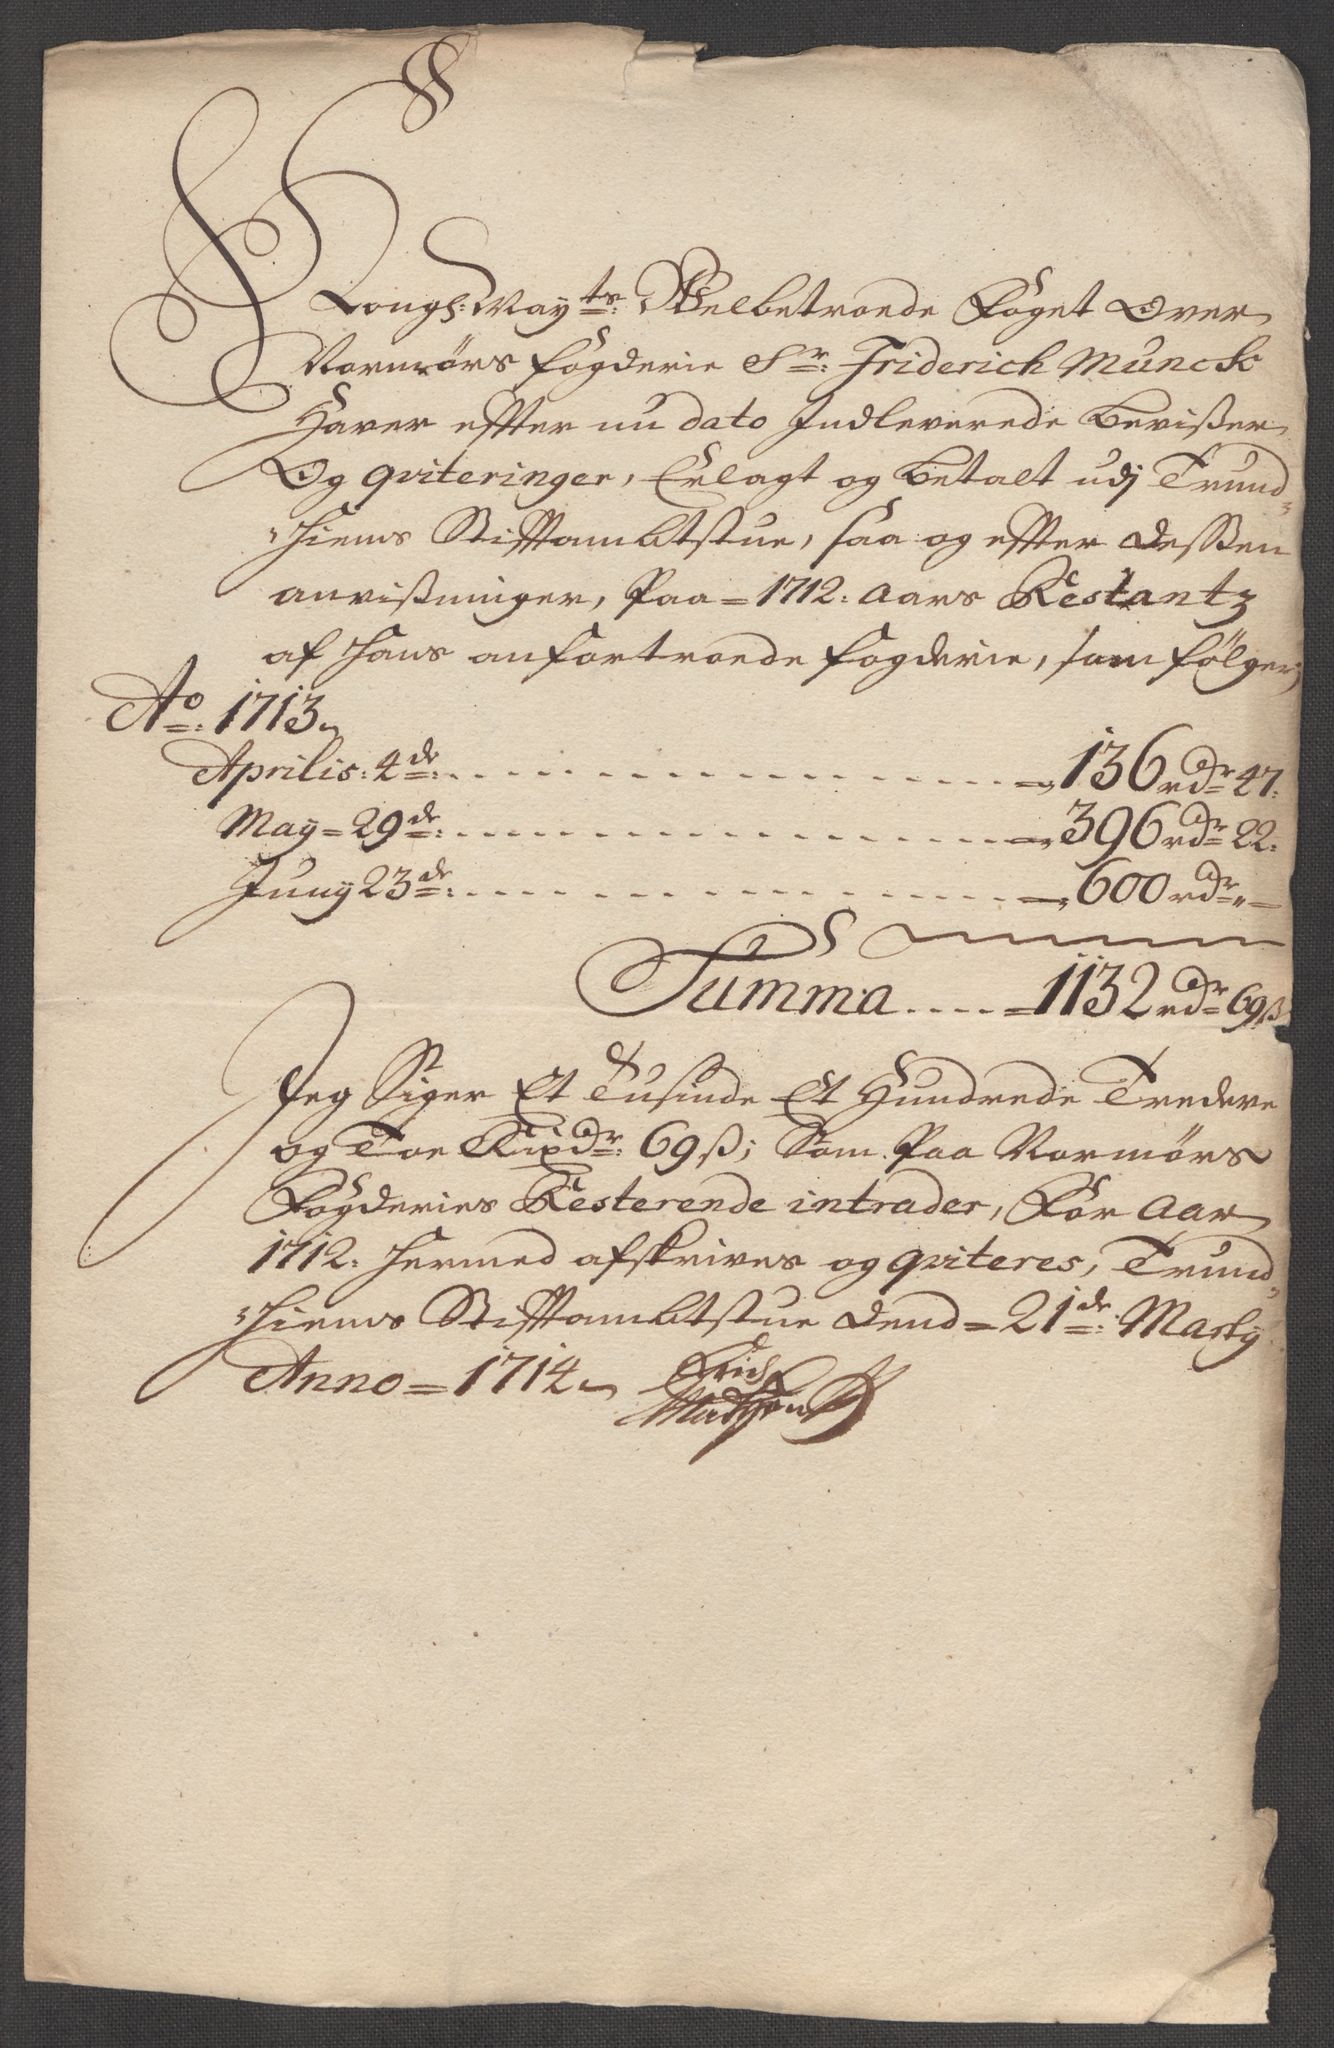 Kongl: May:ts: Welbetroede Foget Over
Normørs fogderie Sr: Friderich Munck
Haver effter nu dato Indleverede bevißer
Og qviteringer, Erlagt og betalt udj Trund-
hiems Stifftambtstue, saa og effter deßen
anvißninger, Paa = 1712: aars Restantz
af hans anfortroede fogderie, som følger,
Ao: 1713
Aprilis: 4de: 136 rdr 47:
May = 29de: 396 rdr 22:
Juny 23de: 600 rdr „ —
Summa .... = 1132 rdr 69 ß
Jeg Siger Et Tusinde Et Hundrede Tredeve
og Toe Rixdr: 69 ß; Som Paa Normørs
Fogderies Resterende intrader, For aar
1712: hermed afskrives og qviteres, Trund-
hiems Stifftambtstue dend = 21de: Marty
Anno = 1714
Erich